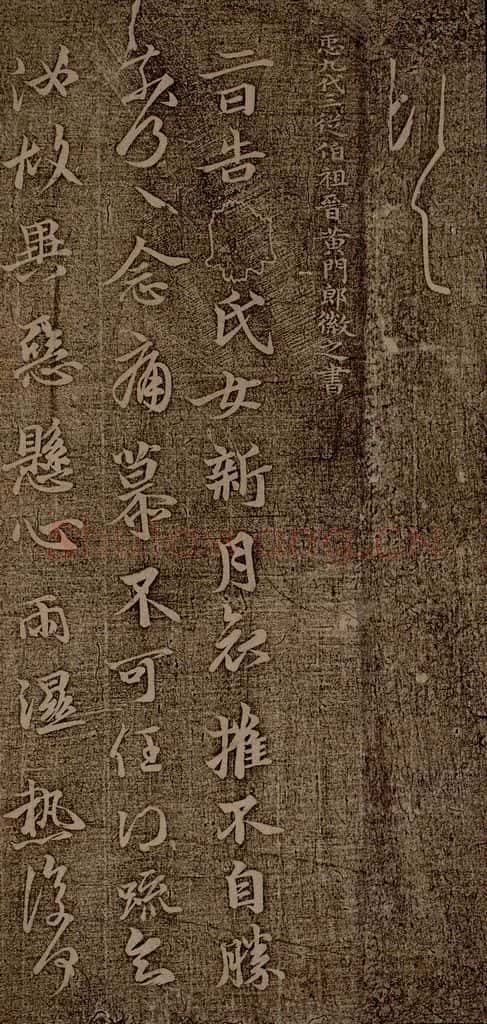 九代三從伯祖晉黄門郎徽之書
二日告氏女新月哀摧不自勝
奈何〻念痛慕不可任得疏知
汝故異惡懸心雨濕熱復何